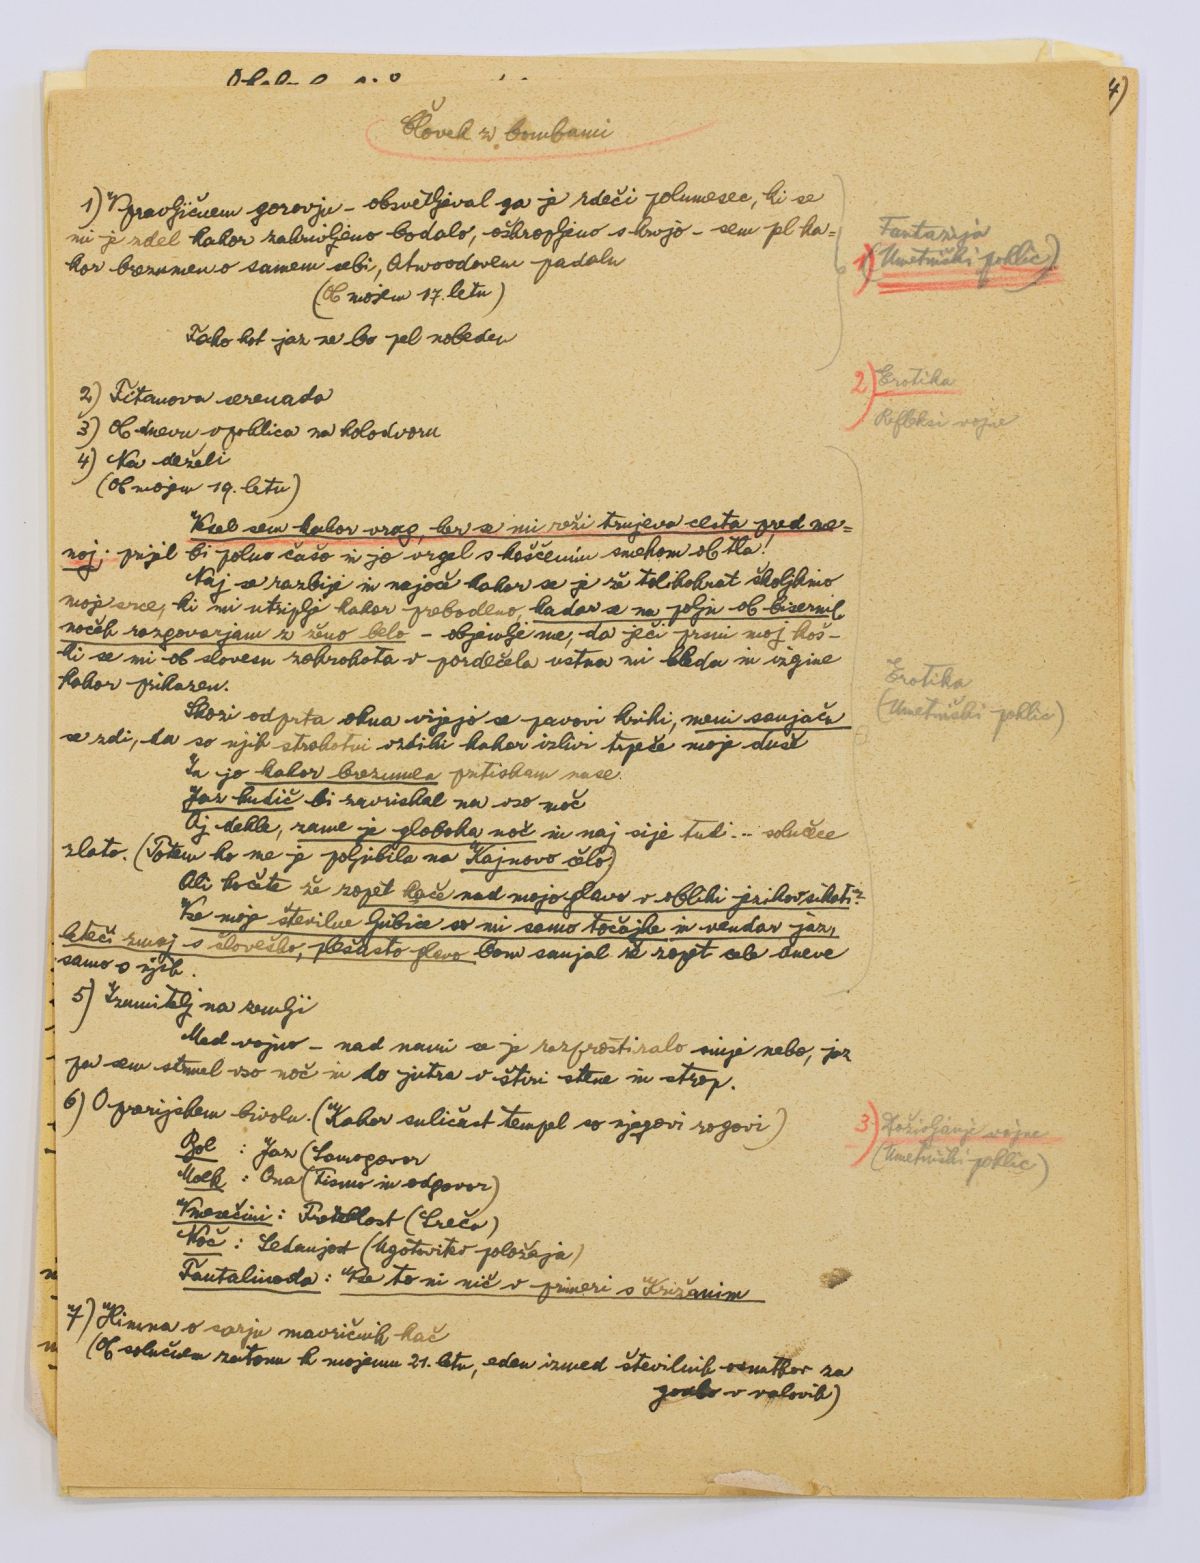 4)
Človek z bombami
1) V pravljičnem gorovju – obsvetljeval ga je rdeči polumesec, ki se
mi je zdel kakor zakrivljeno bodalo, oškropljeno s krvjo – sem pel ka=
kor brezumen o samem sebi, Atwoodovem padalu
(Ob mojem 17. letu)
Tako kot jaz ne bo pel nobeden
Fantazija
1) (Umetniški poklic)
2) Titanova serenada
3) Ob dnevu vpoklica na kolodvoru
4) Na deželi
(Ob mojem 19. letu)
2) Erotika
Refleksi vojne
Vsel sem kakor vrag, ker se mi reži trnjeva cesta pred me=
noj; prijel bi polno čašo in jo vrgel s koščenim smehom ob tla!
Naj se razbije in zajoče kakor se je že tolikokrat školjkino
moje srce, ki mi utriplje kakor prebodeno, kadar se na polju ob bisernih
nočeh razgovarjam z ženo belo – objemlje me, da ječi prsni moj koš –
ki se mi ob slovesu zakrohota v pordečela ustna mi bleda in izgine
kakor prikazen.
Skozi odprta okna vijejo se pavovi kriki, meni sanjaču
se zdi, da so njih strahotni vzdihi kakor izlivi trpeče moje duše
In jo kakor brezumen pritiskam nase.
Jaz hudič bi zavriskal na vso moč
Oj dekle, zame je globoka noč in naj sije tudi ... solnčece
zlato. (Potem ko me je poljubila na Kajnovo čelo)
Ali hočete že zopet kače nad mojo glavo v obliki jezikov sikati?
Vse moje številne ljubice so mi samo točajke in vendar jaz,
leteči zmaj s človeško, plešasto glavo bom sanjal že zopet cele dneve
samo o njih.
Erotika
(Umetniški poklic)
5) Izumitelj na zemlji
Med vojno – nad nami se je razprostiralo sinje nebo, jaz
pa sem strmel vso noč in do jutra v štiri stene in strop.
6) O parijskem bivolu. (Kakor suličast tempel so njegovi rogovi)
Bol : Jaz (Samogovor
Molk : Ona (Pismo in odgovor)
V mesečini : Preteklost (Sreča)
Noč : Sedanjost (Ugotovitev položaja)
Fantalinada : Vse to ni nič v primeri s Križanim
3) Doživljanje vojne
(Umetniški poklic)
7) Himna o carju mavričnih kač
(Ob solnčnem zatonu k mojemu 21. letu, eden izmed številnih osnutkov za
godbo v valovih)